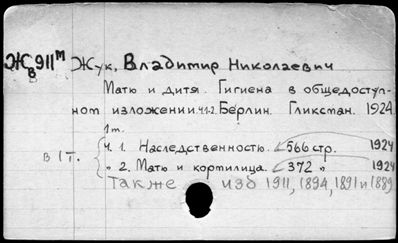 Ж 911м Жук, Владимир Николаевич
в
Мать и дитя. Гигиена в общедоступ-
ном изложении. ч.1-2. Берлин. Гликсман. 1924
1 т.
в 1 т. ч. 1. Наследственность. 566 стр. 1924
" 2. Мать и кормилица. 372 " 1924
Также изд 1911, 1894, 1891 и 1889